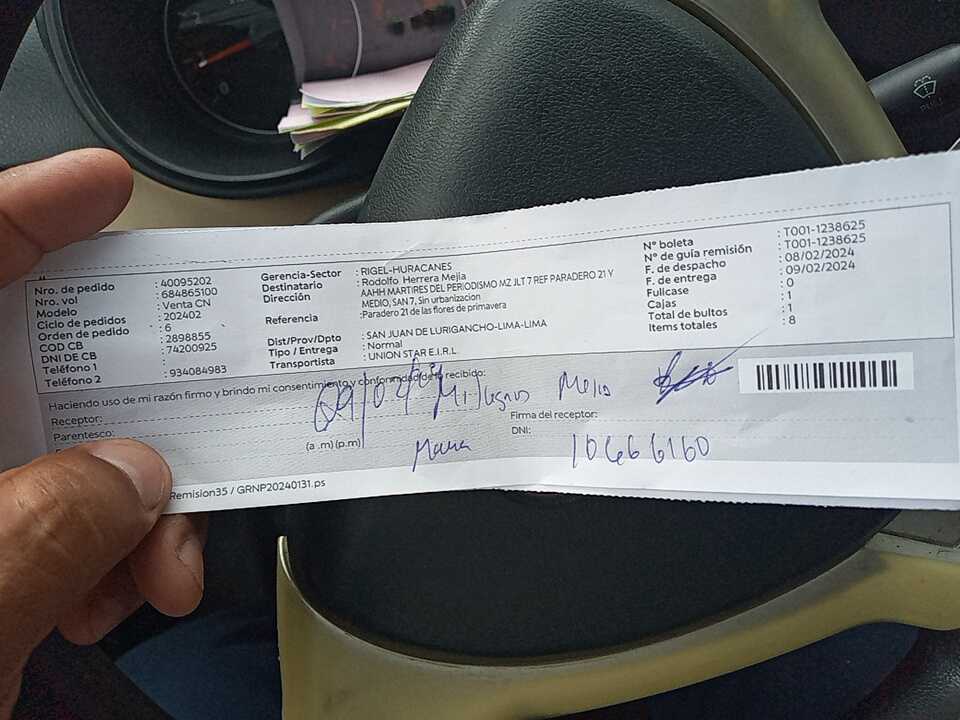 Nro. de pedido : 40095202
Nro. vol : 684865100
Modelo : Venta CN
Ciclo de pedidos : 202402
Orden de pedido : 6
COD CB : 2898855
DNI DE CB : 74200925
Teléfono 1
Teléfono 2 : 934084983
Gerencia-Sector : RIGEL-HURACANES
Destinatario : Rodolfo Herrera Mejia
Dirección : AAHH MARTIRES DEL PERIODISMO MZ JLT 7 REF PARADERO 21 Y
MEDIO, SAN 7, Sin urbanizacion
Referencia : Paradero 21 de las flores de primavera
Dist/Prov/Dpto : SAN JUAN DE LURIGANCHO-LIMA-LIMA
Tipo / Entrega : Normal
Transportista : UNION STAR E.I.R.L.
N° boleta : T001-1238625
N° de guía remisión : T001-1238625
F. de despacho : 08/02/2024
F. de entrega : 09/02/2024
Fullcase : 0
Cajas : 1
Total de bultos : 1
Items totales : 8
Haciendo uso de mi razón firmo y brindo mi consentimiento y conformidad de lo recibido:
Receptor:
Parentesco:
Milagros
Firma del receptor:
(a .m) (p.m)
DNI: 10666160
Remision35 / GRNP20240131.ps
PULL